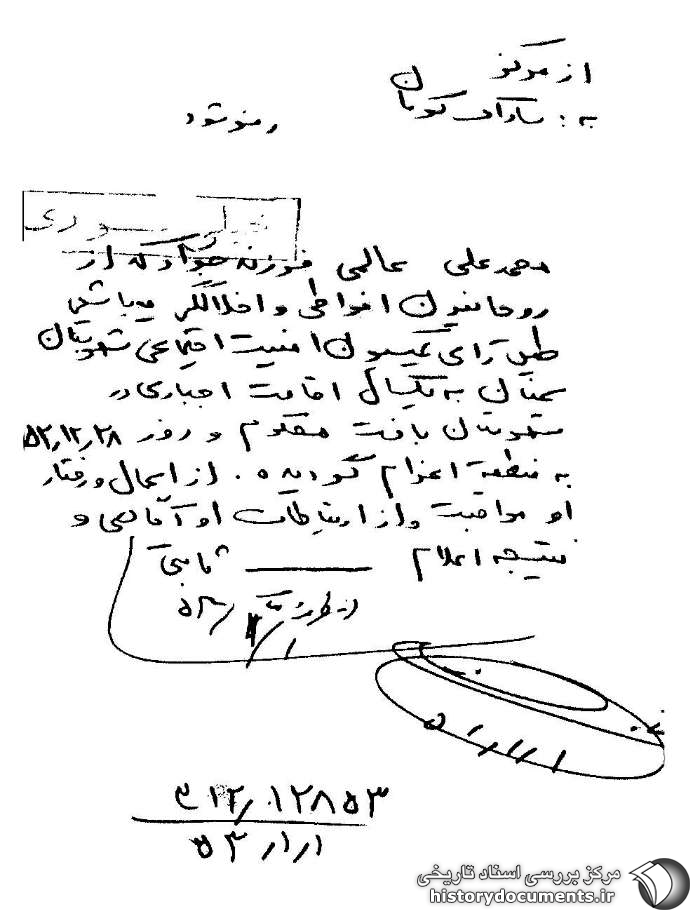 از مرکز
به: ساواک کرمان
رمز شود
خیلی فوری
محمدعلی عالمی فرزند جواد که از
روحانیون افراطی و اخلالگر میباشد
طبق رای کمیسیون امنیت اجتماعی شهرستان
سمنان به یکسال اقامت اجباری در
شهرستان بافت محکوم و روز ۵۲٫۱۲٫۲۸
به منطقه اعزام گردیده. از اعمال و رفتار
او مراقبت و از ارتباطات او آگاهی و
نتیجه اعلام ثابتی
از طرف
۵۳/۱/۱
۳۱۲٫۱۲۸۵۳
۵۳٫۱٫۱
مرکز بررسی اسناد تاریخی
historydocuments.ir